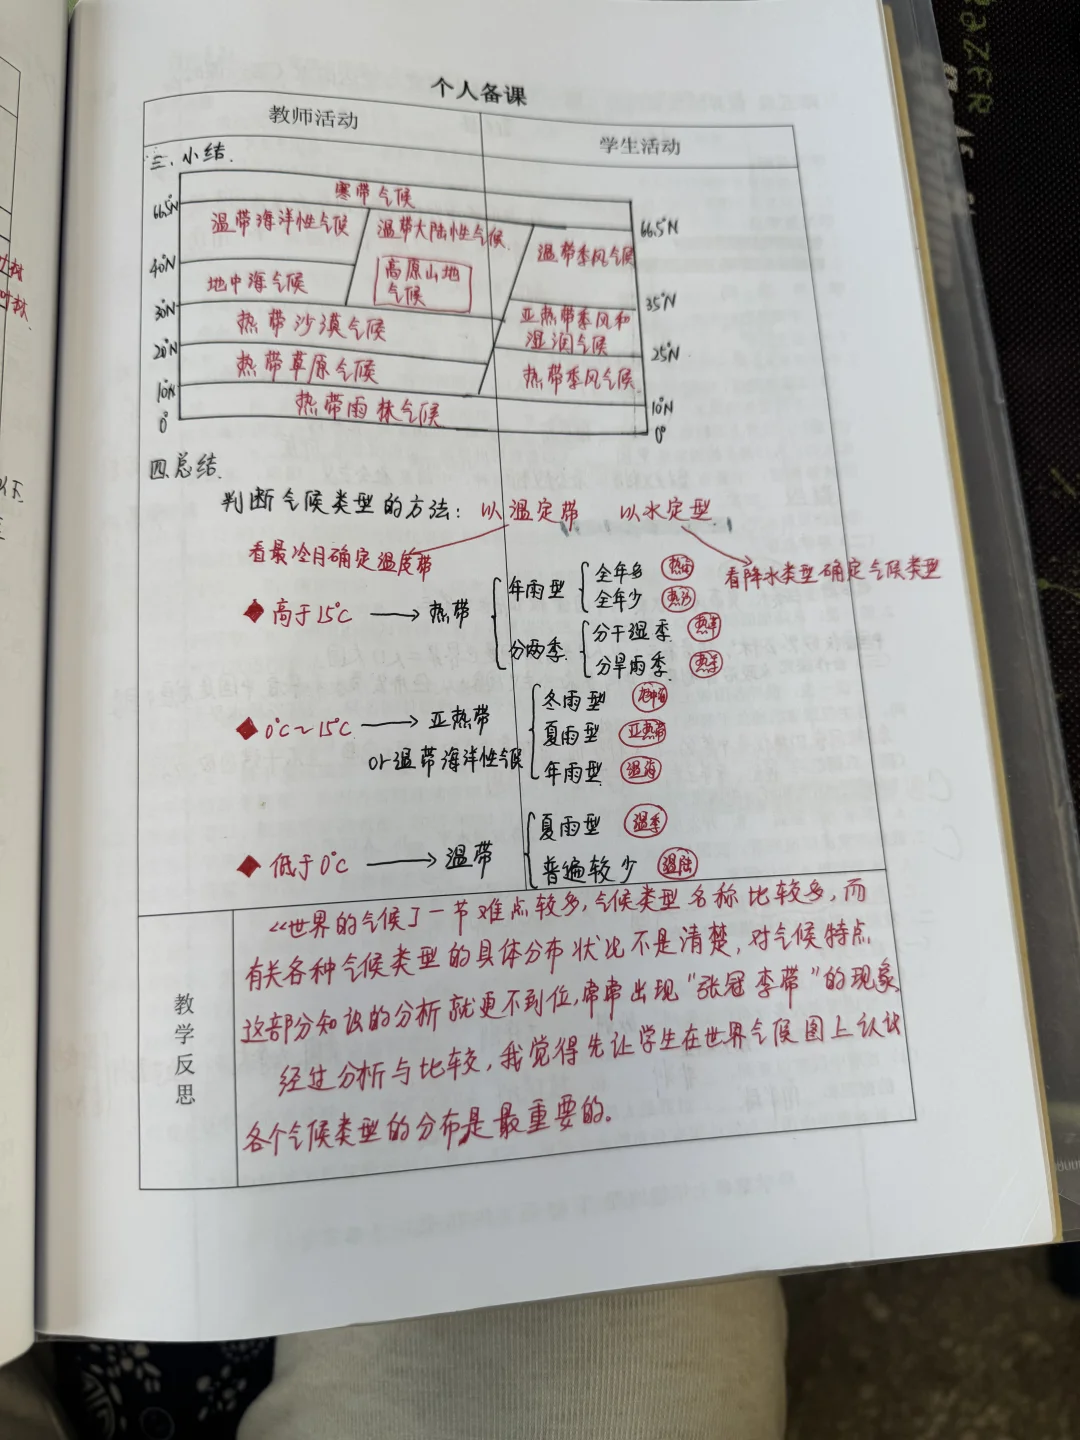 个人备课
教师活动
学生活动
三、小结.
寒带气候
66.5°N
66.5°N
温带海洋性气候
温带大陆性气候
温带季风气候
40°N
地中海气候
高原山地
气候
30°N
35°N
热带沙漠气候
亚热带季风和
湿润气候
20°N
25°N
热带草原气候
热带季风气候
10°N
10°N
热带雨林气候
0°
0°
四.总结.
判断气候类型的方法: 以温定带 以水定型
看最冷月确定温度带
看降水类型确定气候类型
高于15℃ → 热带
年雨型
全年多 热雨
全年少 热沙
分两季.
分干湿季. 热草
分旱雨季. 热季
0℃~15℃ → 亚热带
or温带海洋性气候
冬雨型 地中海
夏雨型 亚热带
年雨型 温海
低于0℃ → 温带
夏雨型 温季
普遍较少 温陆
教学反思
《世界的气候》一节难点较多,气候类型名称比较多,而
有关各种气候类型的具体分布状况不是清楚,对气候特点
这部分知识的分析就更不到位,常常出现"张冠李带"的现象
经过分析与比较,我觉得先让学生在世界气候图上认识
各个气候类型的分布是最重要的。
AZER